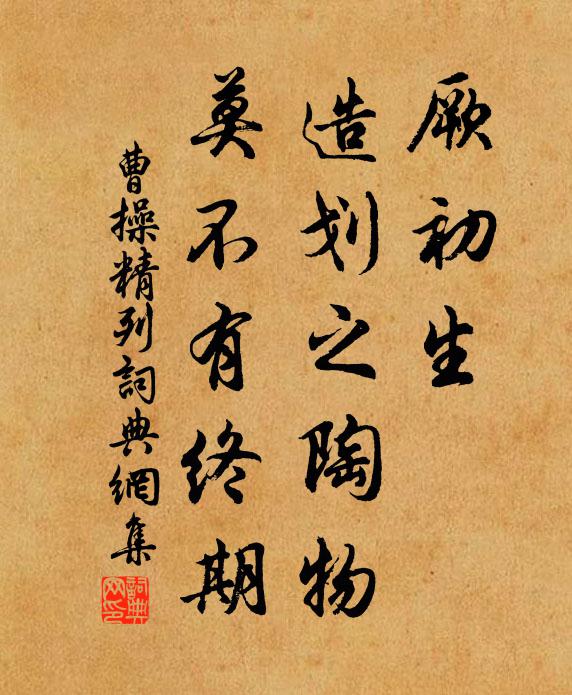 厥初生
造划之陶物
莫不有终期
曹操精列詞典網集
詞典
网印